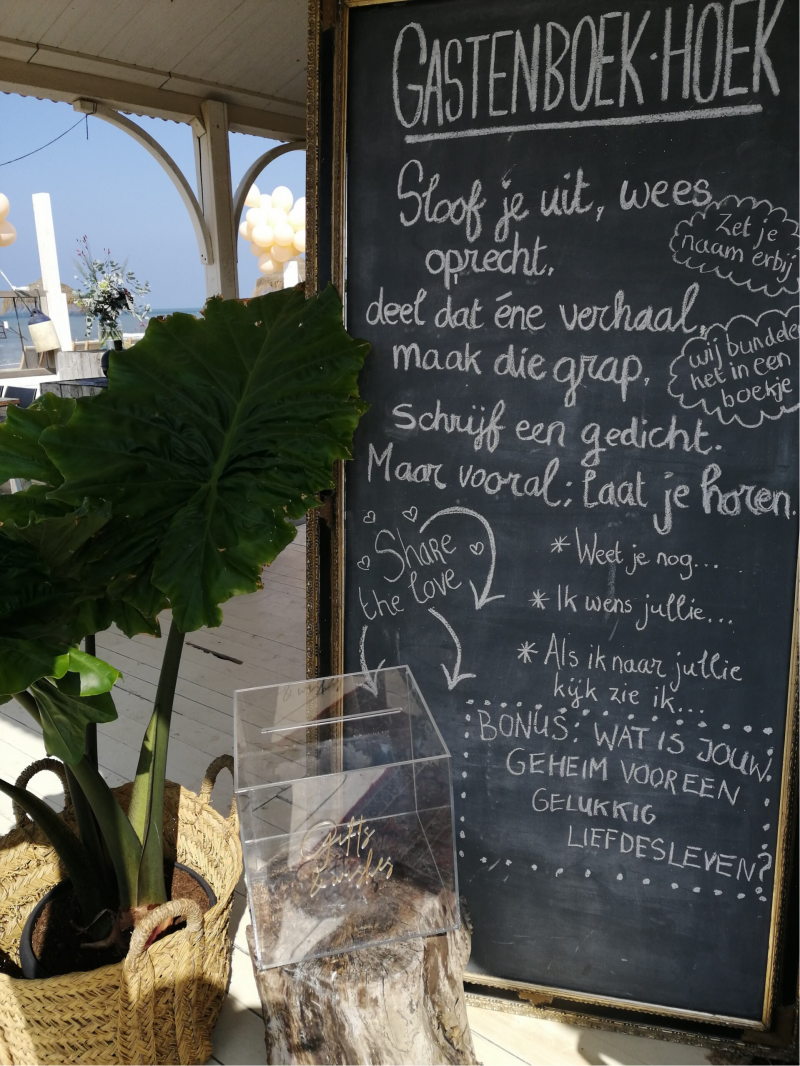 GASTENBOEK·HOEK
Sloof je uit, wees
oprecht,
deel dat éne verhaal,
maak die grap,
schrijf een gedicht.
Maar vooral; laat je horen.
Zet je
naam erbij
wij bundelen
het in een
boekje
Share
the love
* Weet je nog...
* Ik wens jullie...
* Als ik naar jullie
kijk zie ik...
BONUS: WAT IS JOUW
GEHEIM VOOR EEN
GELUKKIG
LIEFDESLEVEN?
Gifts
& wishes